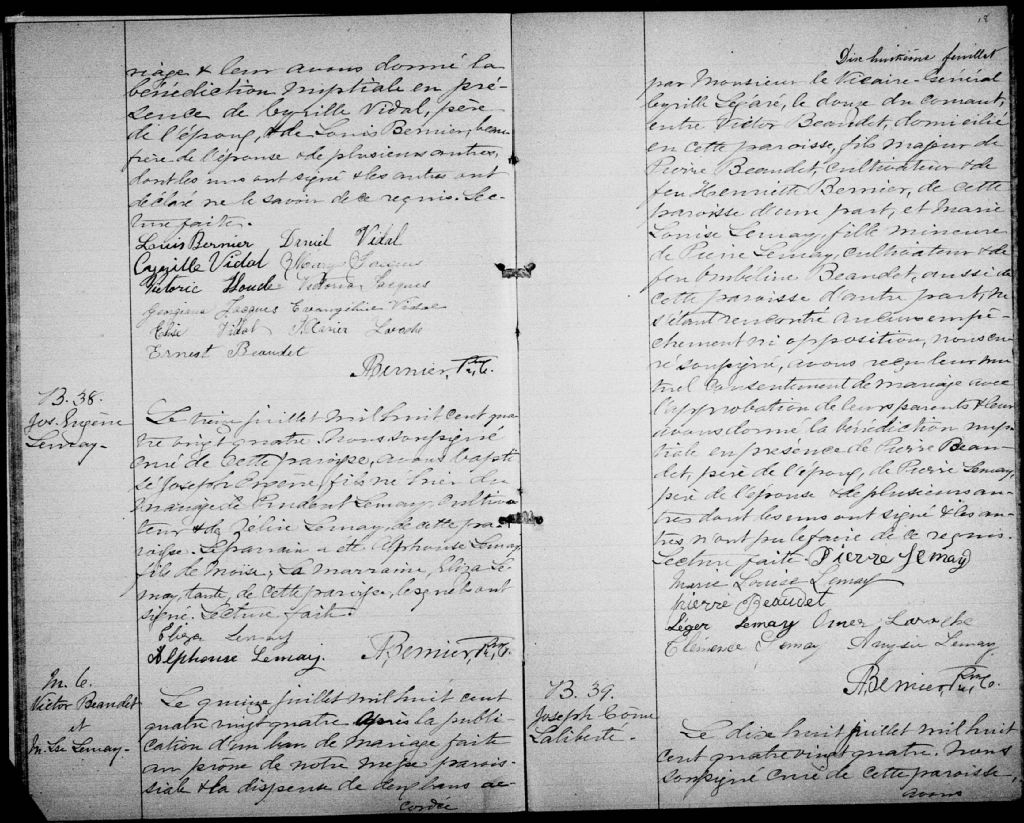 riage & leur avons donné la
bénédiction nuptiale en pré-
sence de Cyrille Vidal, père
de l'époux, & de Louis Bernier, beau
frère de l'épouse & de plusieurs autres,
dont les uns ont signé & les autres ont
déclaré ne le savoir de ce requis. Lec-
ture faite.
Louis Bernier Daniel Vidal
Cyrille Vidal Jacques
Victoric Houde Victoria Jacques
Georgiana Jacques Evangéline Vidal
Elise Vidal
Ernest Beaudet
ABernier, Ptre, C.
B. 38.
Jos. Eugène
Lemay.
Le treize juillet mil huit cent qua
tre vingt quatre. Nous soussigné
curé de cette paroisse, avons bapti
sé Joseph Eugène, fils né hier du
mariage de Prudent Lemay, cultiva
teur & de Zélie Lemay, de cette pa-
roisse. Le parrain a été Alphonse Lemay
fils de Moïse; la marraine, Eliza Le
may, tante, de cette paroisse, lesquels ont
signé. Lecture faite.
Eliza Lemay
Alphonse Lemay. ABernier, Ptre, C.
M. 6.
Victor Beaudet
et
M. Lse Lemay.
Le quinze juillet mil huit cent
quatre vingt quatre après la publi-
cation d'un ban de mariage faite
au prône de notre messe parois-
siale & la dispense de deux bans ac-
cordée
18
Dix huitième feuillet
par Monsieur le Vicaire-Général
Cyrille Légaré, le douze du courant,
entre Victor Beaudet, domicilié
en cette paroisse, fils majeur de
Pierre Beaudet, cultivateur & de
feu Henriette Bernier, de cette
paroisse d'une part, et Marie
Louise Lemay, fille mineure
de Pierre Lemay, cultivateur & de
feu Ombéline Beaudet, aussi de
cette paroisse d'autre part, ne
s'étant rencontré aucun empê-
chement ni opposition, nous cu-
ré soussigné, avons reçu leur mu
tuel consentement de mariage avec
l'approbation de leurs parents & leur
avons donné la bénédiction nup
tiale en présence de Pierre Beau-
det, père de l'époux, de Pierre Lemay,
père de l'épouse & de plusieurs au-
tres dont les uns ont signé & les au-
tres n'ont pu le faire de ce requis.
Lecture faite Pierre Lemay
Marie Louise Lemay
pierre Beaudet
Léger Lemay Omer Laroche
Clémence Lemay Lemay
ABernier Ptre, C.
B. 39.
Joseph Côme
Laliberté.
Le dix huit juillet mil huit
cent quatre vingt quatre. Nous
soussigné curé de cette paroisse,
avons